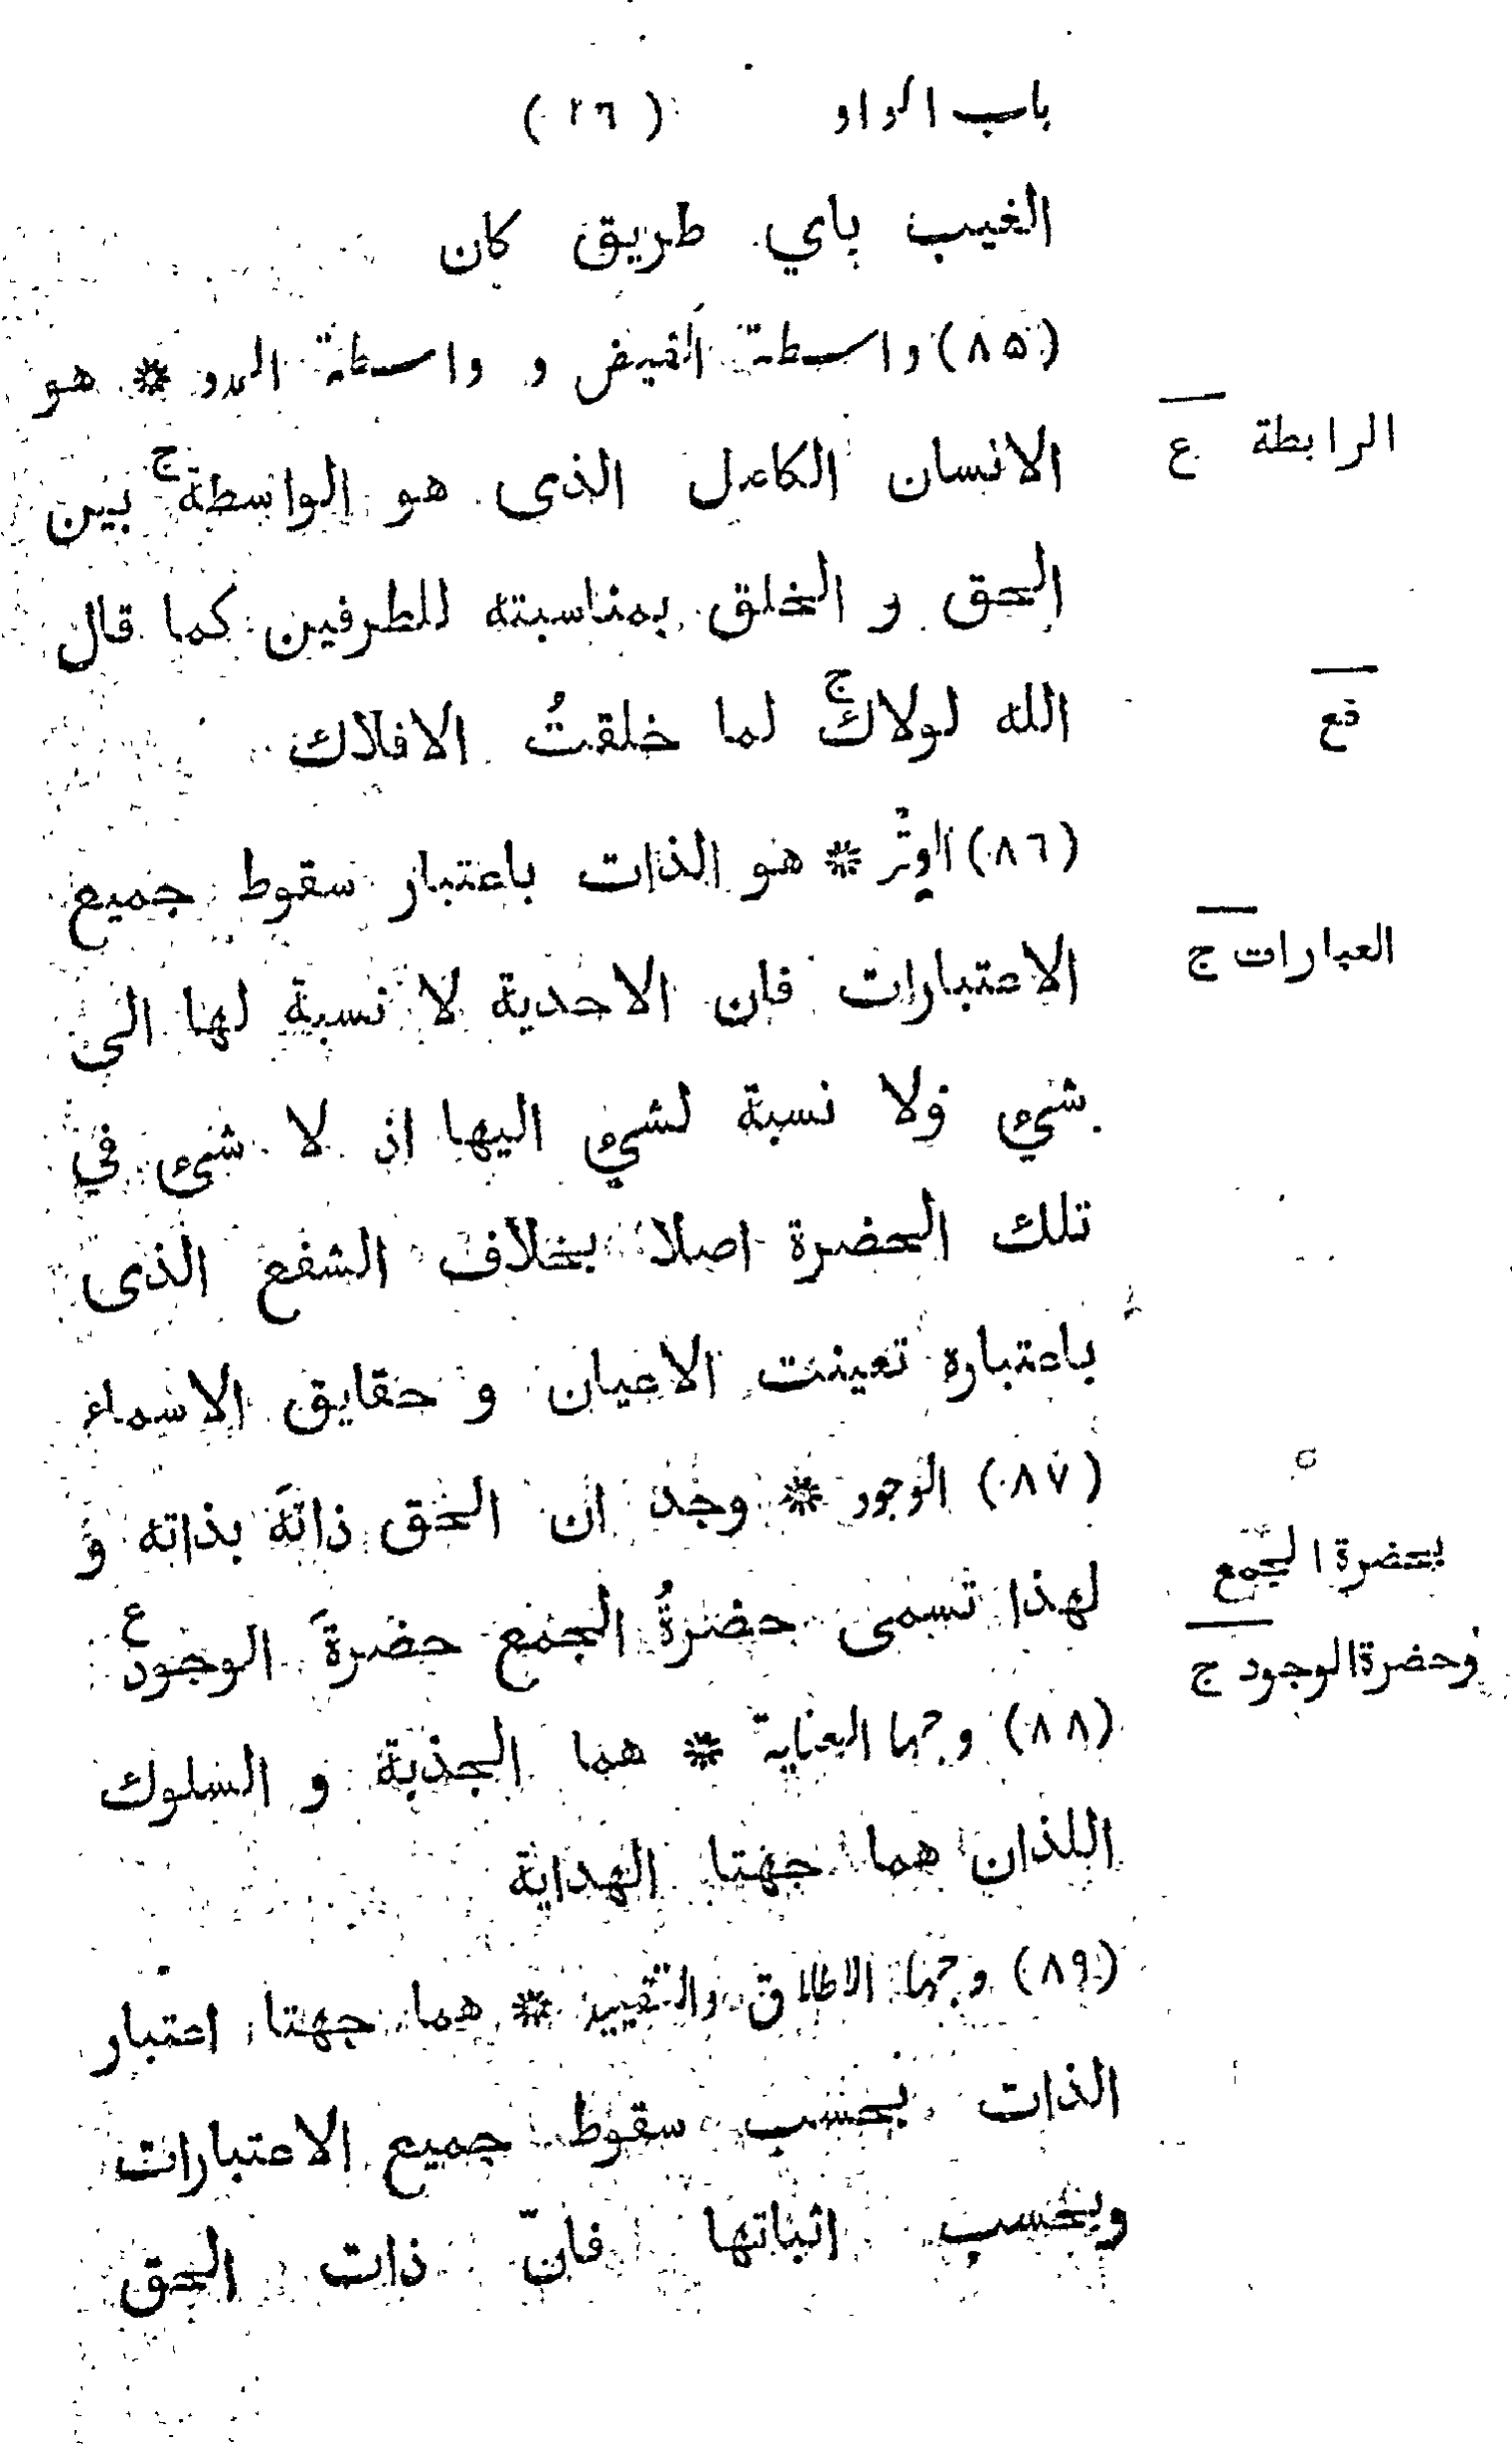 باب الواو (٢٦)
الغيب باي طريق كان
(٨٥) واسطة الفيض و واسطة المدد * هو
الانسان الكامل الذى هو الواسطة ج بين
الرابطة ع
الحق و الخلق بمناسبته للطرفين كما قال
الله لولاك ج لما خلقتُ الافلاك
فع
(٨٦) الوتر * هو الذات باعتبار سقوط جميع
الاعتبارات فان الاحدية لا نسبة لها الى
العبارات ج
شيء ولا نسبة لشيء اليها اذ لا شيء في
تلك الحضرة اصلا بخلاف الشفع الذى
باعتباره تعينت الاعيان و حقايق الاسماء
(٨٧) الوجود * وجد ان الحق ذاتَه بذاته و
لهذا تسمى حضرةُ الجمع حضرةَ الوجود ع
بحضرة الجمع
وحضرة الوجود ج
(٨٨) وجها العناية * هما الجذبة و السلوك
اللذان هما جهتا الهداية
(٨٩) وجها الاطلاق والتقييد * هما جهتا اعتبار
الذات بحسب سقوط جميع الاعتبارات
وبحسب اثباتها فانّ ذات الحق